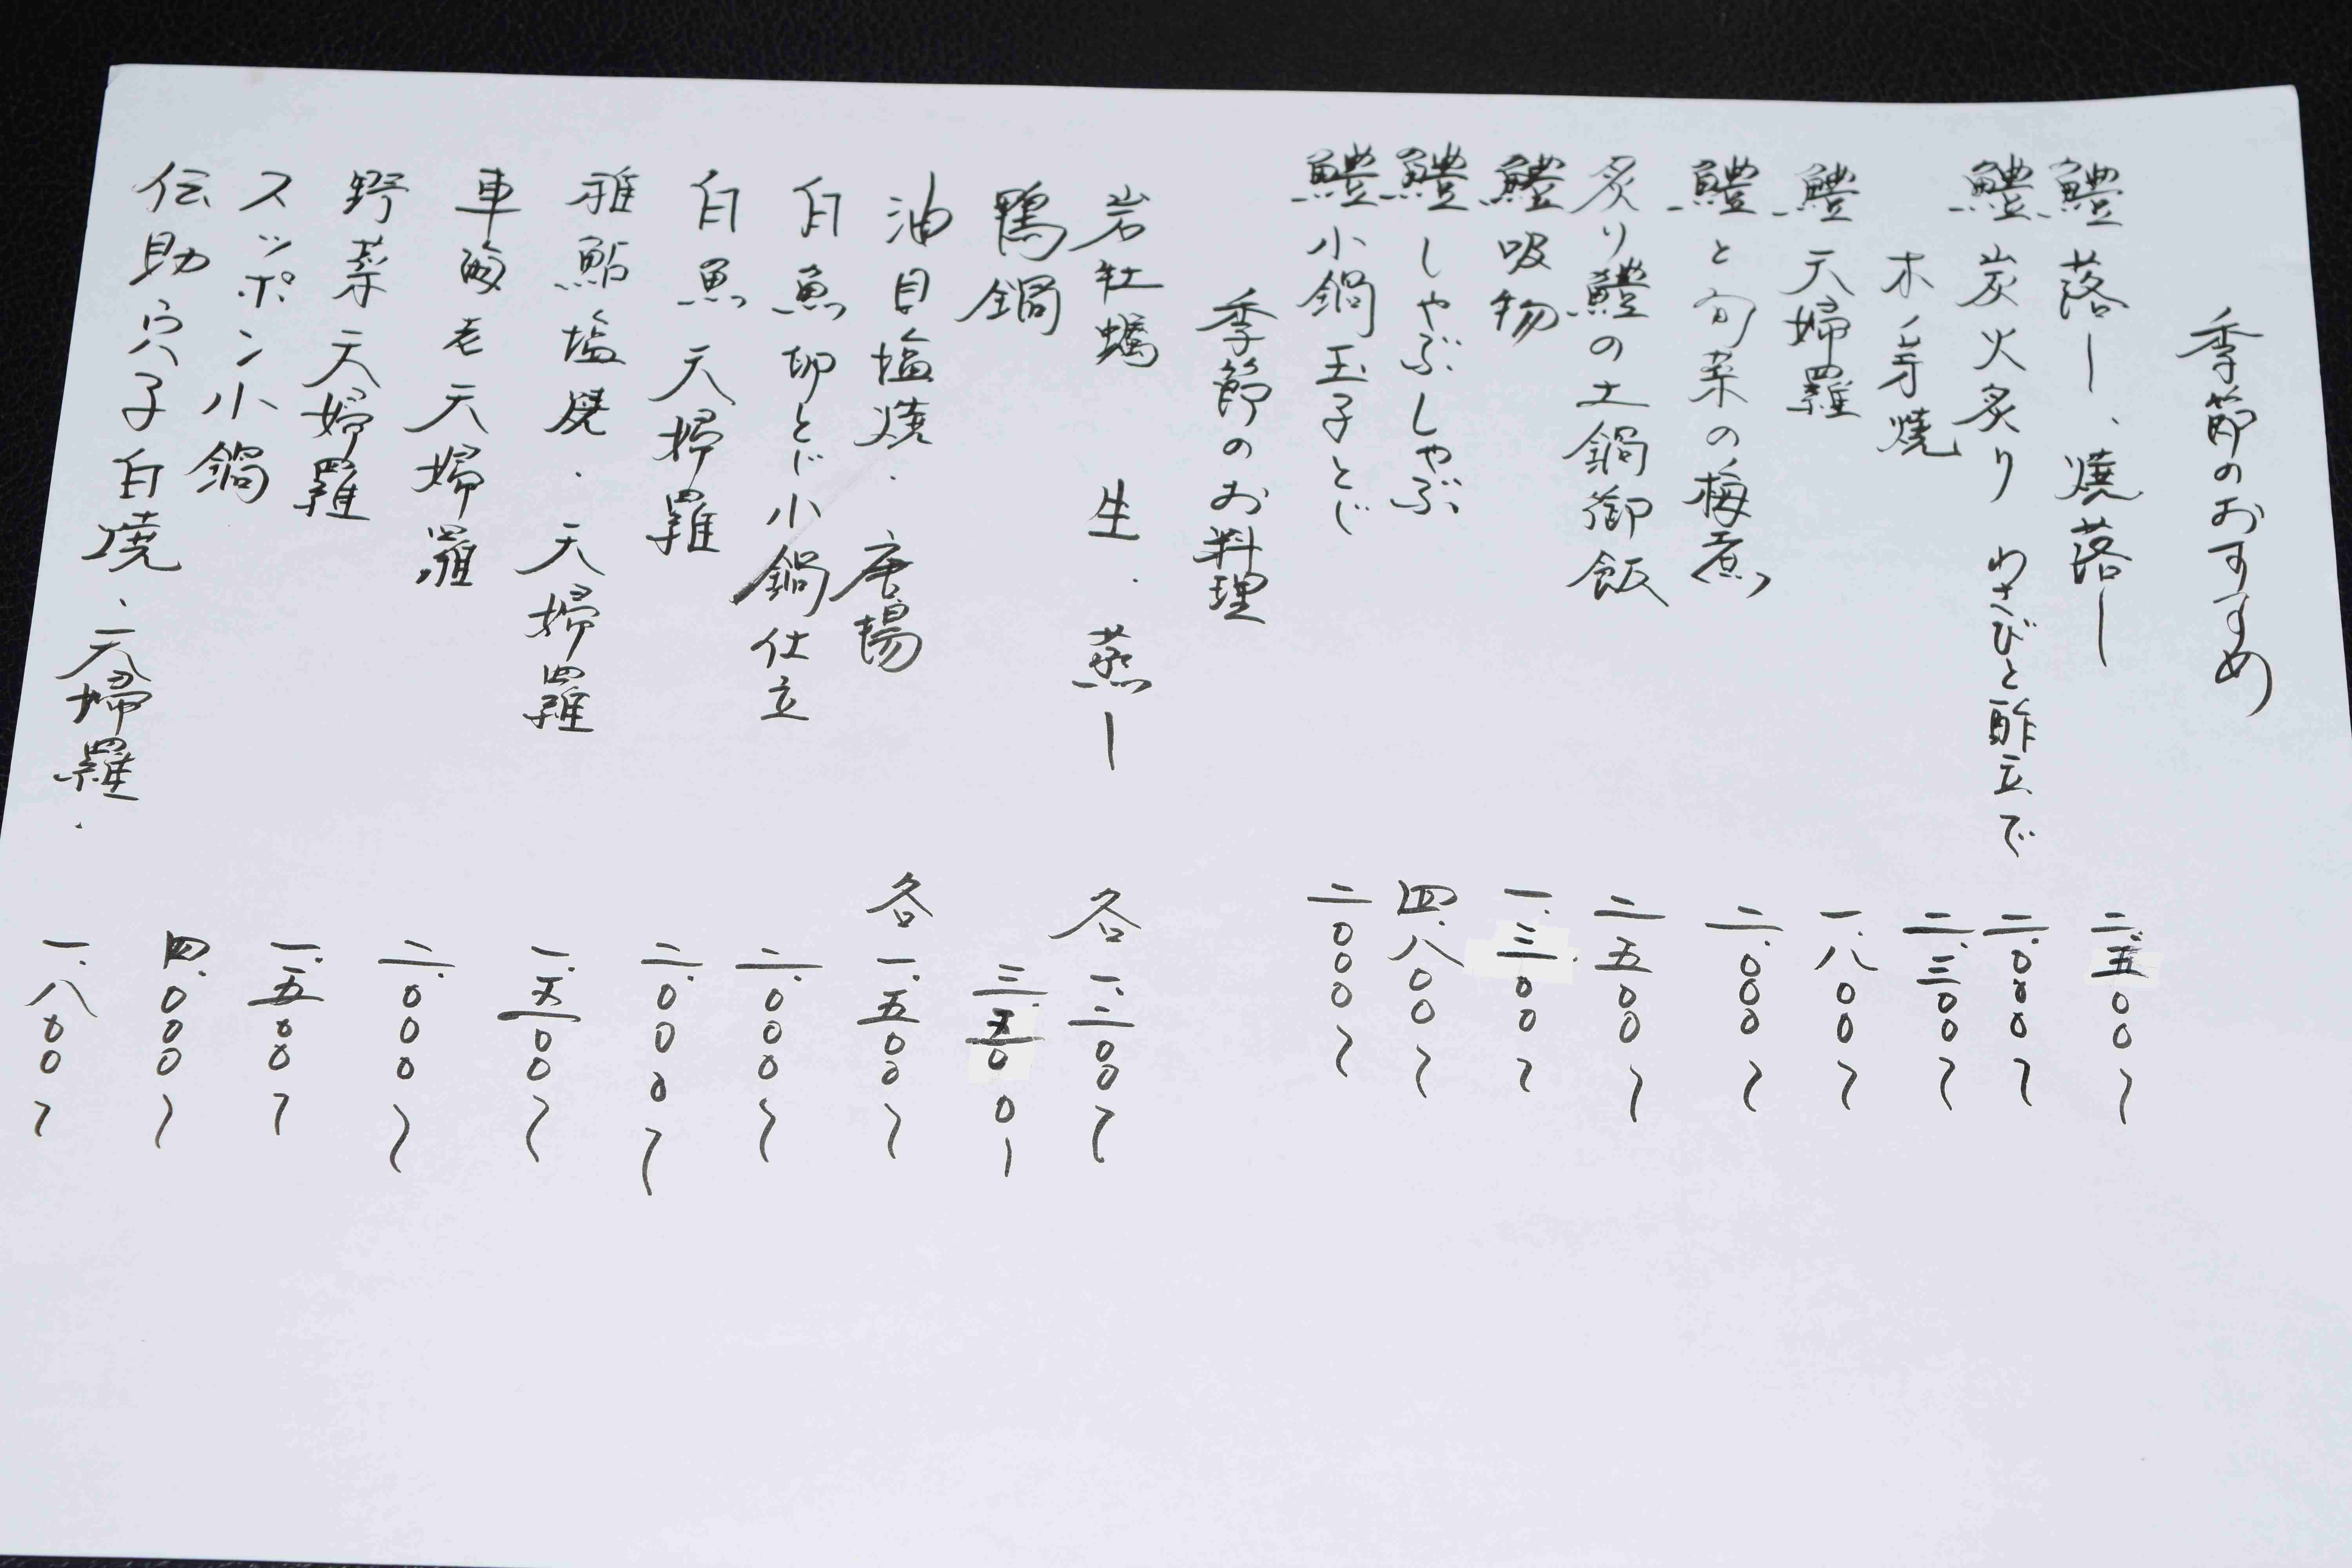 季節のおすすめ
鱧落し、焼落し 二.五〇〇〜
鱧炭火炙り わさびと酢立で 二.〇〇〇〜
木ノ芽焼 二.三〇〇〜
鱧天婦羅 一.八〇〇〜
鱧と旬菜の梅煮 二.〇〇〇〜
炙り鱧の土鍋御飯 二五〇〇〜
鱧吸物 一.三〇〇〜
鱧しゃぶしゃぶ 四.八〇〇〜
鱧小鍋玉子とじ 二〇〇〇〜
季節のお料理
岩牡蠣 生.蒸し 各一.二〇〇〜
鴨鍋 三.五〇〇〜
油目塩焼.唐揚 各一.五〇〇〜
白魚卵とじ小鍋仕立 二.〇〇〇〜
白魚天婦羅 二.〇〇〇〜
稚鮎塩焼.天婦羅 一.五〇〇〜
車海老天婦羅 二.〇〇〇〜
野菜天婦羅 一.五〇〇〜
スッポン小鍋 四.〇〇〇〜
伝助穴子白焼、天婦羅. 一.八〇〇〜